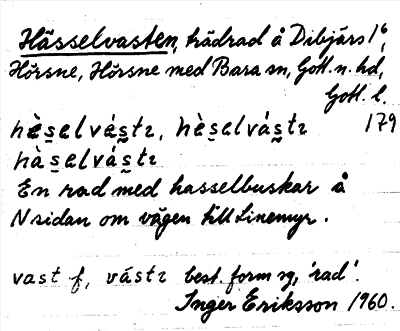 Hässelvasten, trädrad å Dibjärs 1⁶,
Hörsne, Hörsne med Bara sn, Gott. n. hd,
Gotl. l.
hè̱s̱ɛlvás̱tɪ, hès̱ɛlvás̱tɪ 179
hàs̱ɛlvás̱tɪ
En rad med hasselbuskar å
N sidan om vägen till Linemyr.
vast f, vástɪ best. form sg, 'rad'.
Inger Eriksson 1960.